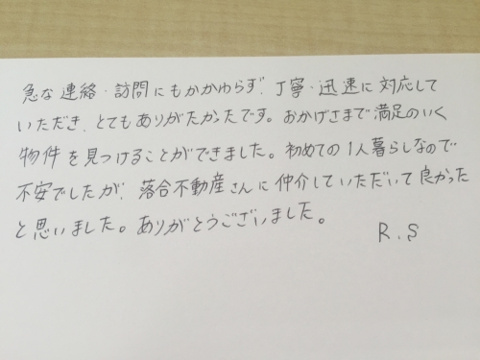 急な連絡・訪問にもかかわらず、丁寧・迅速に対応して
いただき、とてもありがたかったです。おかげさまで満足のいく
物件を見つけることができました。初めての1人暮らしなので
不安でしたが、落合不動産さんに仲介していただいて良かった
と思いました。ありがとうございました。
R.S